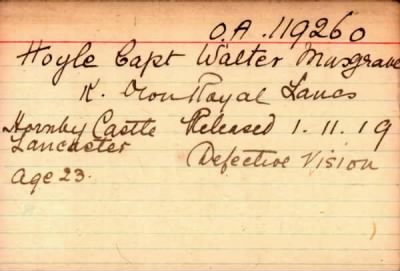 O.A. 119260
Hoyle Capt Walter Musgrave
K. Own Royal Lancs
Hornby Castle Released 1.11.19
Lancaster Defective Vision
age 23.